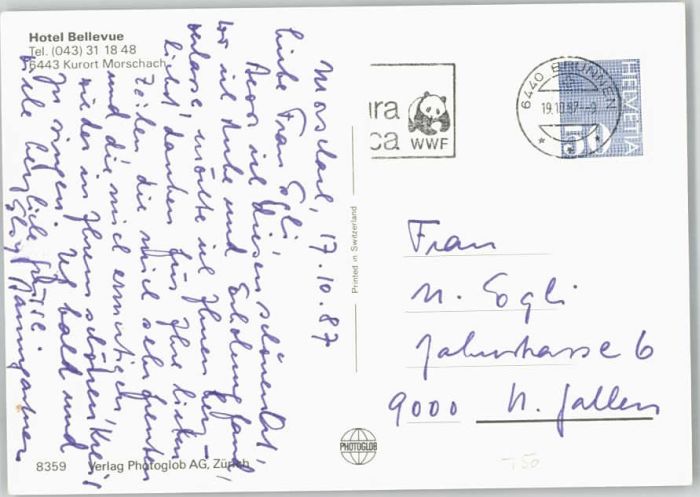 Hotel Bellevue
Tel. (043) 31 18 48
6443 Kurort Morschach
Morschach, 17.10.87
Liebe Frau Egli
Bevor ich diesen schönen Ort,
wo ich Ruhe und Erholung fand,
verlasse möchte ich Ihnen herz-
lich danken für Ihre lieben
Zeilen die mich sehr freuten
und die mich ermutigen
wieder in Ihrem schönen Kreis
zu singen. Auf bald und
viele herzliche Grüsse.
Baumgartner
8359 Verlag Photoglob AG, Zürich
Printed in Switzerland
PHOTOGLOB
ura
ca WWF
6440 BRUNNEN
19.10.87
HELVETIA
50
Frau
M. Egli
Jahnstrasse 6
9000 St. Gallen